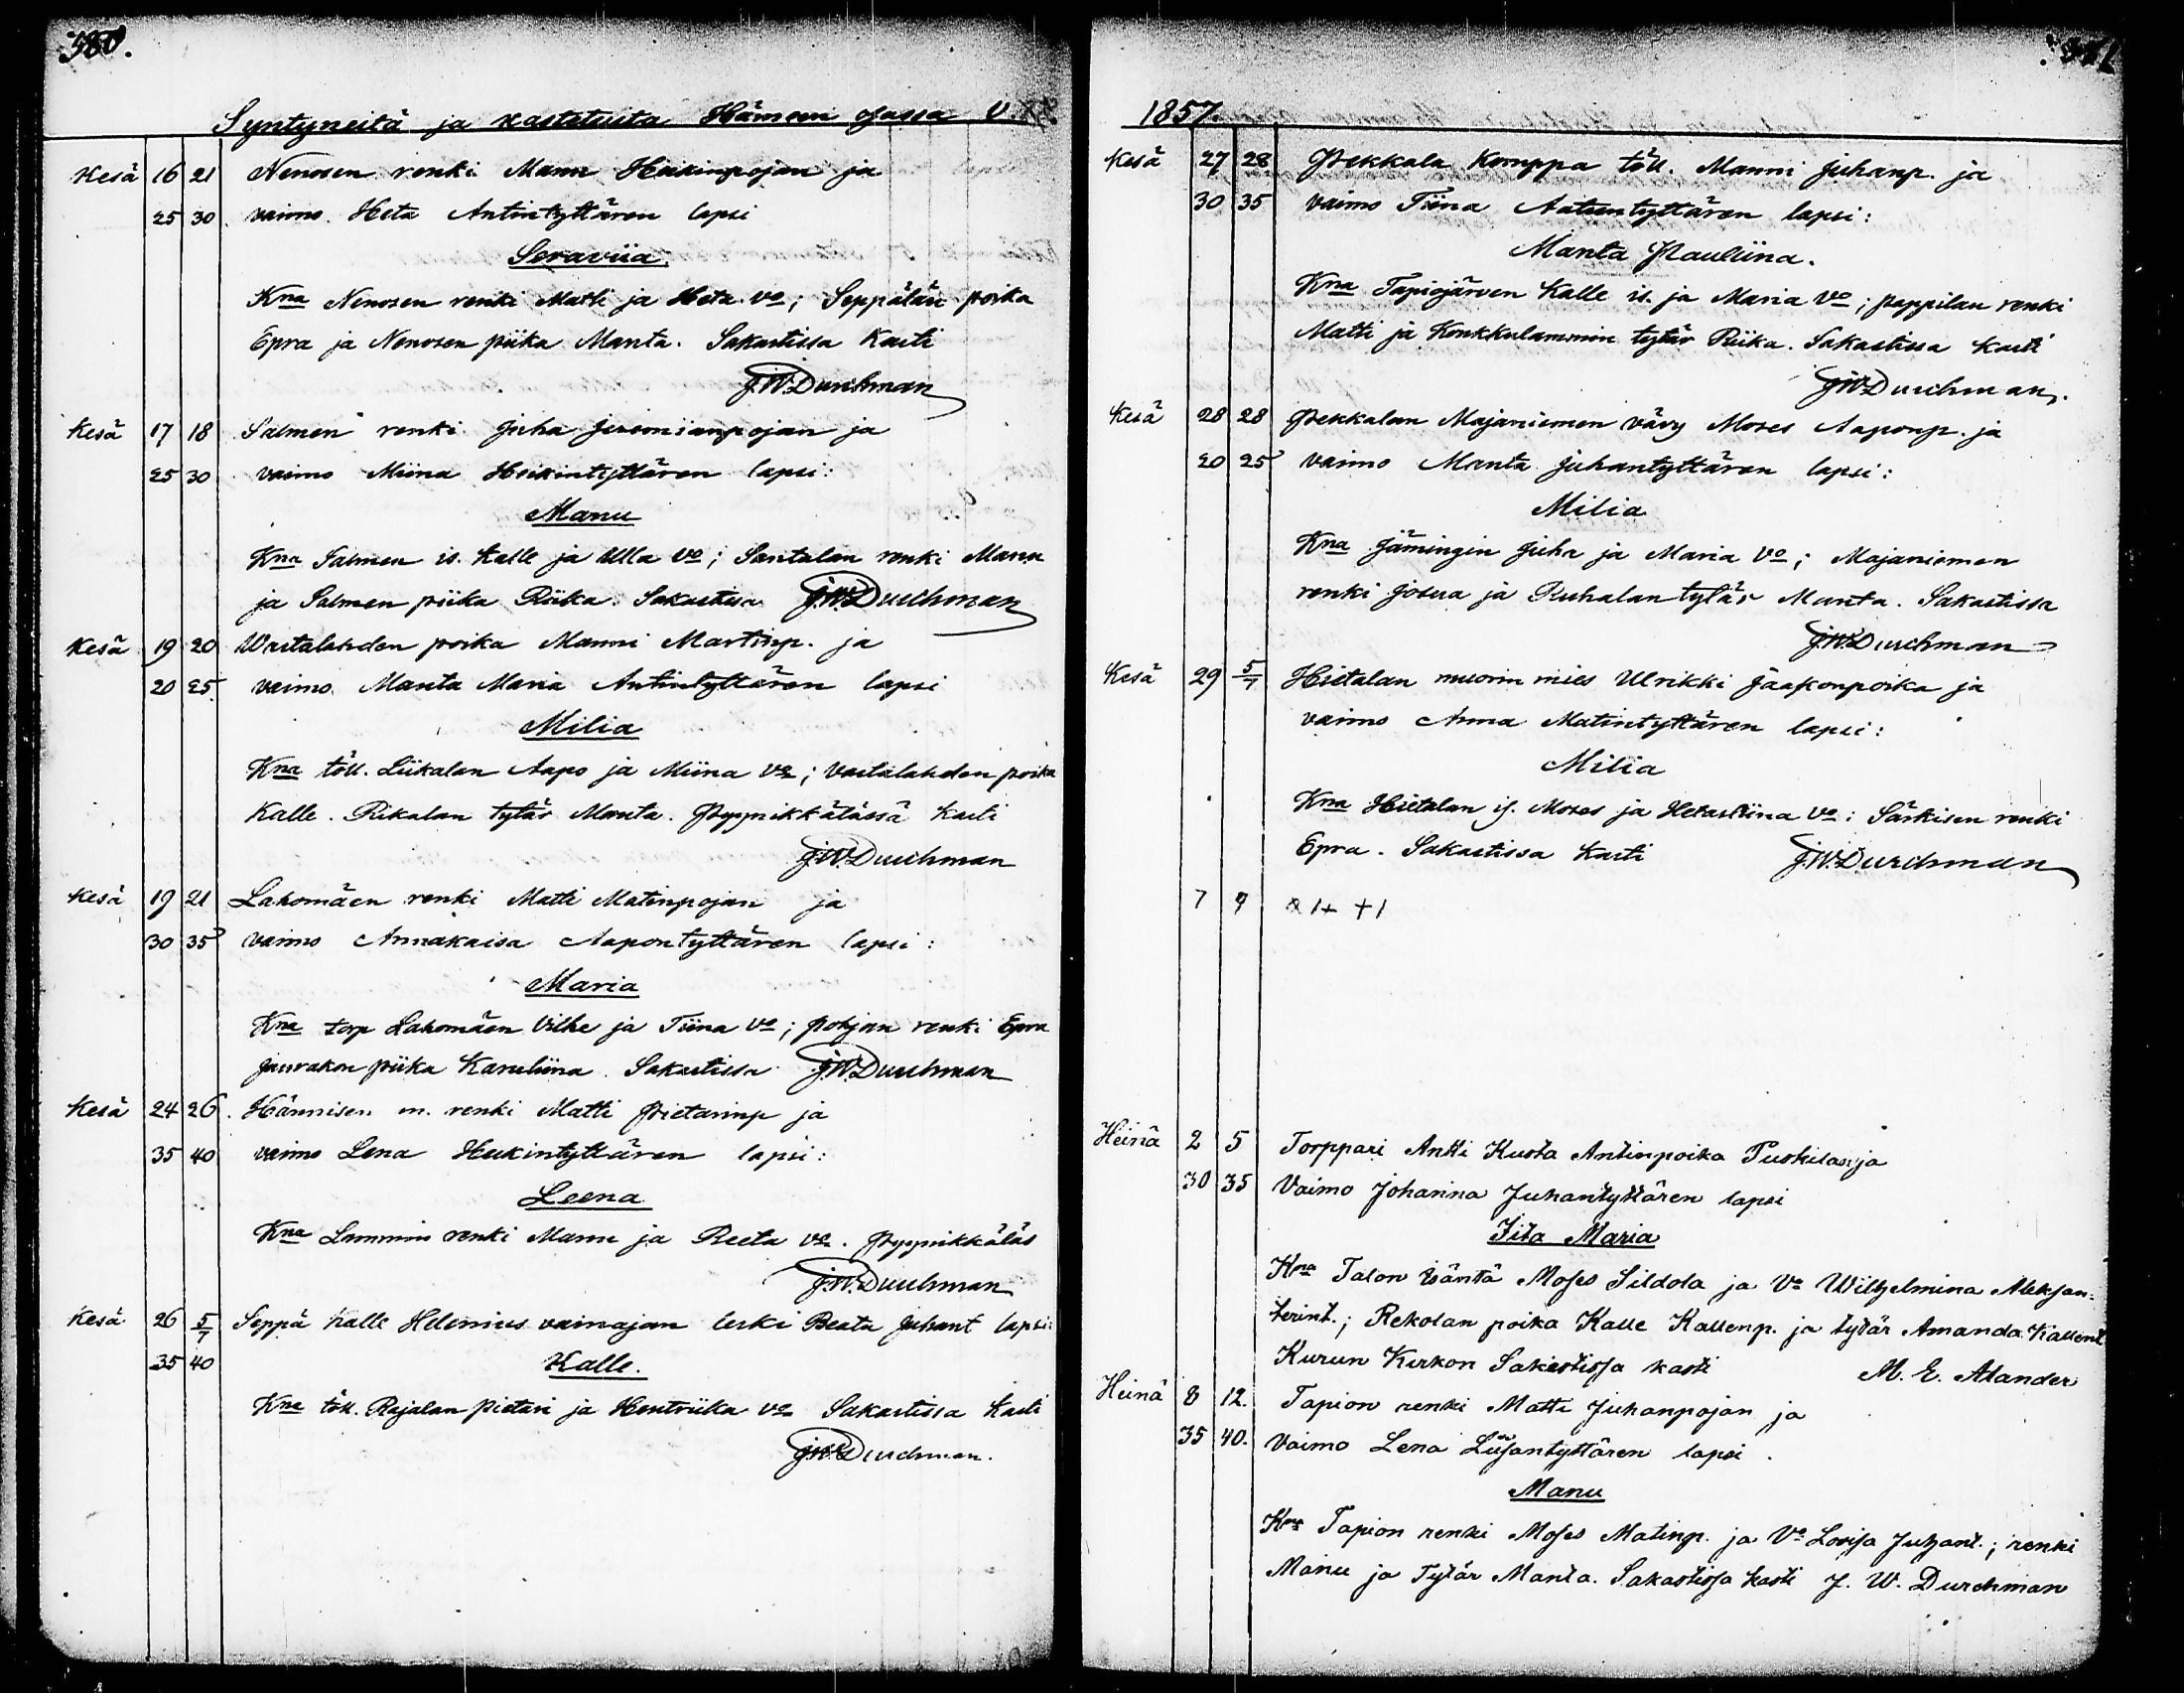 380.
Syntyneitä ja kastetuita Hämeen osassa V.
Kesä 16 21 Nenosen renki Manu Heikinpojan ja
25 30 vaimo Heta Antintyttären lapsi
Seraviia.
Kna Nenosen renki Matti ja Heta vo; Seppälän poika
Epra ja Nenosen piika Manta. Sakastissa Kasti
J.W.Durchman
Kesä 17 18 Salmen renki Juha Jeremianpojan ja
25 30 vaimo Miina Heikintyttären lapsi:
Manu
Kna Salmen is. Kalle ja Ulla vo; Santalan renki Manu
ja Salmen piika Riika. Sakastissa J.W.Durchman
Kesä 19 20 Vastalahden poika Manni Martinp. ja
20 25 vaimo Manta Maria Antintyttären lapsi
Milia
Kna töll. Liikalan Aapo ja Miina vo; Vastalahden poika
Kalle. Rikalan tytär Manta. Pyynikkälässä Kasti
J.W.Durchman
Kesä 19 21 Lahomäen renki Matti Matinpojan ja
30 35 vaimo Annakaisa Aapontyttären lapsi:
Maria
Kna torp Lahomäen Vilhe ja Tiina vo; pohjan renki Epra
Jaurakon piika Karuliina. Sakastissa J.W.Durchman
Kesä 24 26. Hännisen m. renki Matti Pietarinp ja
35 40 vaimo Lena Heikintyttären lapsi:
Leena
Kna Lammin renki Manu ja Reeta vo. Pyynikkäläs
J.W.Durchman
Kesä 26 5/7 Seppä Kalle Helenius vainajan leski Beata Juhant lapsi:
35 40 Kalle.
Kna töll. Rajalan Pietari ja Hentriika vo Sakastissa Kasti
J.W.Durchman.
1857.
Kesä 27 28 Pekkala Komppa töll. Manni Juhanp. ja
30 35 vaimo Tiina Aatuntyttären lapsi:
Manta Pauliina.
Kna Tapiojärven Kalle is. ja Maria vo; pappilan renki
Matti ja Konkkulammin tytär Riika. Sakastissa kasti
J.W.Durchman.
Kesä 28 28 Pekkalan Majaniemen vävy Moses Aaponp. ja
20 25 vaimo Manta Juhantyttären lapsi:
Milia
Kna Jämingin Juha ja Maria Vo; Majaniemen
renki Josua ja Ruhalan tytär Manta. Sakastissa
J.W.Durchman
Kesä 29 5/7 Hietalan nuorin mies Ulrikki Jaakonpoika ja
vaimo Anna Matintyttären lapsi:
Milia
Kna Hietalan is. Moses ja Hetastiina Vo: Särkisen renki
Epra. Sakastissa Kasti J.W.Durchman
7 9
Heinä 2 5 Torppari Antti Kusta Antinpoika Puskilan ja
30 35 Vaimo Johanna Juhantyttären lapsi
Iita Maria
Kna Talon isäntä Moses Sildola ja Vo Wilhelmina Aleksan-
terint.; Rekolan poika Kalle Kallenp. ja tytär Amanda Kallent
Kurun Kirkon Sakastissa kasti M. E. Alander
Heinä 8 12. Tapion renki Matti Juhanpojan ja
35 40. Vaimo Lena Liisantyttären lapsi.
Manu
Kna Tapion renki Moses Matinp. ja Vo Lovisa Juhant.; renki
Manu ja Tytär Manta. Sakastissa kasti J. W. Durchman